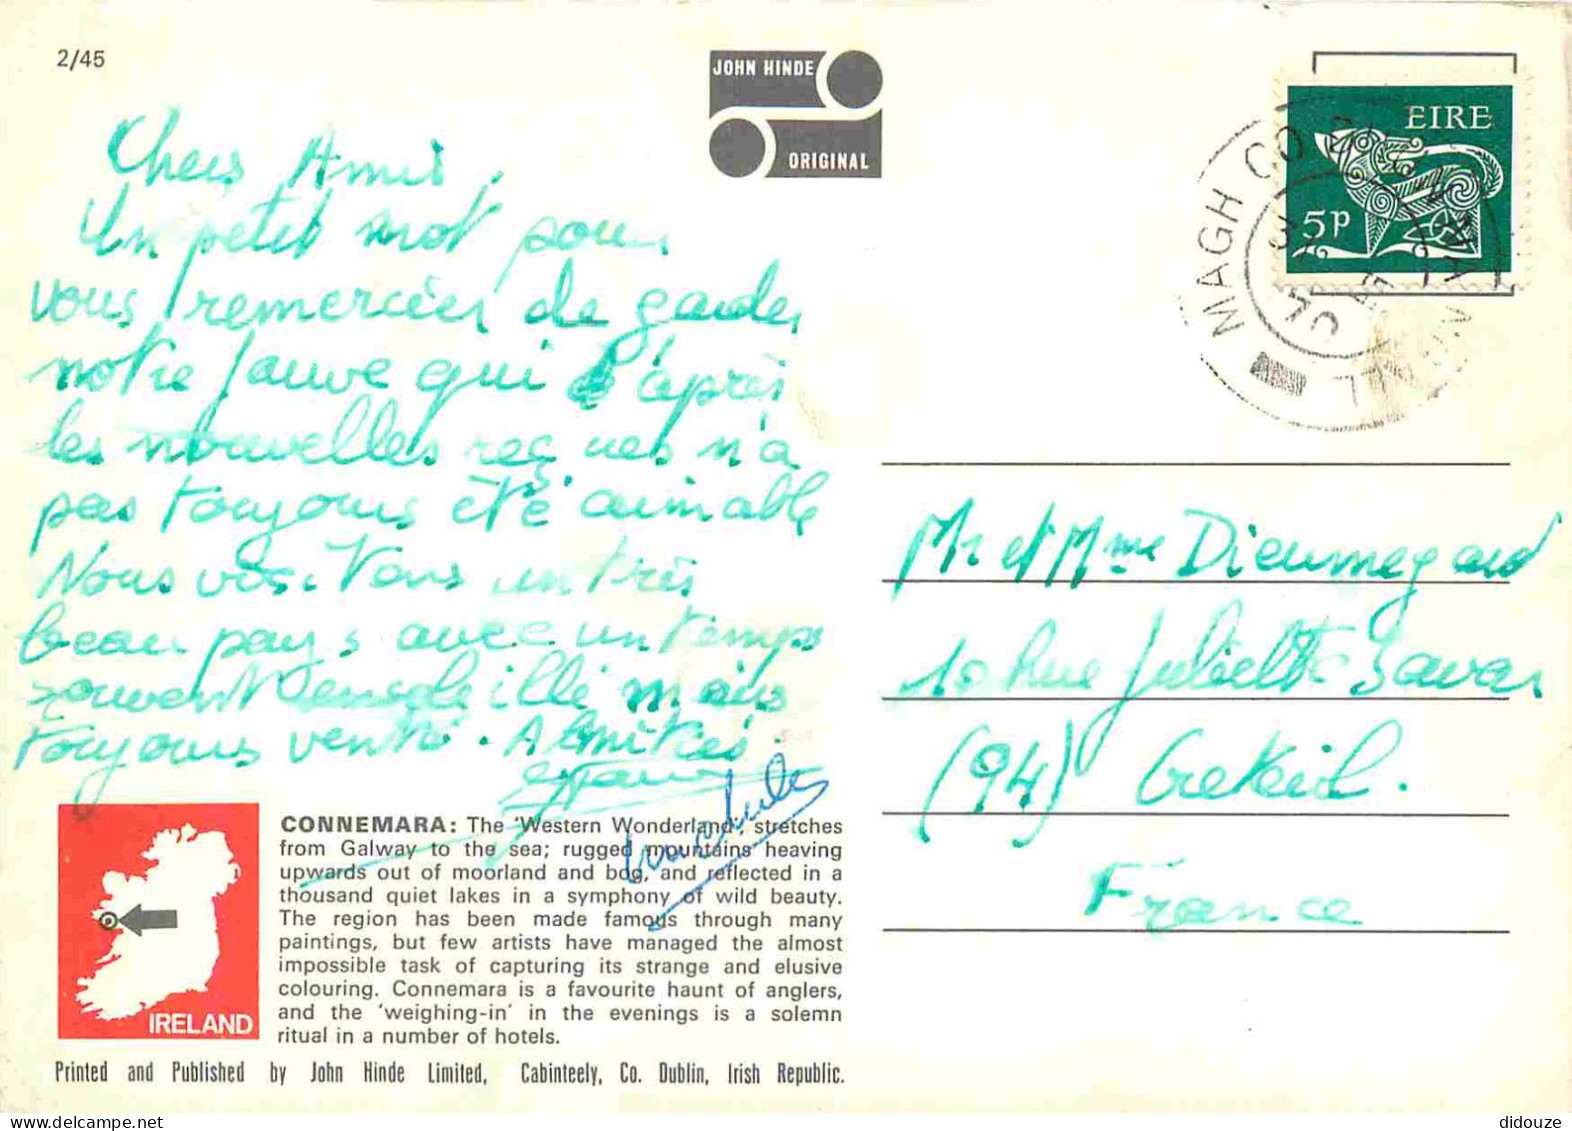 2/45
JOHN HINDE
ORIGINAL
EIRE
5p
MAGH CO
Chers Amis,
Un petit mot pour
vous remercier de garder
notre fauve qui d'après
les nouvelles reçues n'a
pas toujours été aimable
Nous visitons un très
beau pays avec un temps
souvent ensoleillé mais
toujours venté. Amitiés.
Mr et Mme Dieumegard
10 Rue Juliette Savar
(94) Creteil.
France
CONNEMARA: The 'Western Wonderland', stretches
from Galway to the sea; rugged mountains heaving
upwards out of moorland and bog, and reflected in a
thousand quiet lakes in a symphony of wild beauty.
The region has been made famous through many
paintings, but few artists have managed the almost
impossible task of capturing its strange and elusive
colouring. Connemara is a favourite haunt of anglers,
and the 'weighing-in' in the evenings is a solemn
ritual in a number of hotels.
IRELAND
Printed and Published by John Hinde Limited, Cabinteely, Co. Dublin, Irish Republic.
didouze